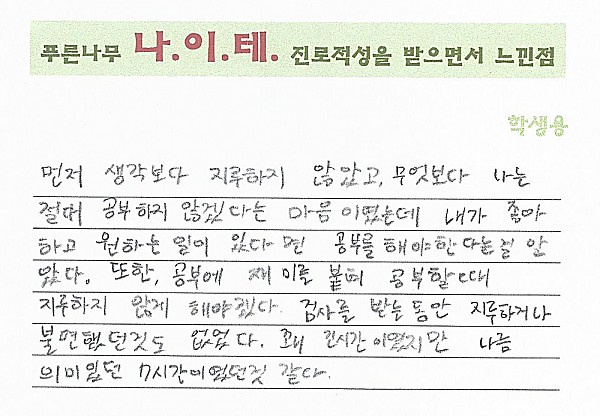 푸른나무 나.이.테. 진로적성을 받으면서 느낀점
학생용
먼저 생각보다 지루하지 않았고, 무엇보다 나는
절대 공부하지 않겠다는 마음이였는데 내가 좋아
하고 원하는 일이 있다면 공부를 해야한다는걸 알
았다. 또한, 공부에 재미를 붙혀 공부할때
지루하지 않게 해야겠다. 검사를 받는동안 지루하거나
불편했던것도 없었다. 꽤 긴시간이였지만 나름
의미있던 7시간이였던것 같다.